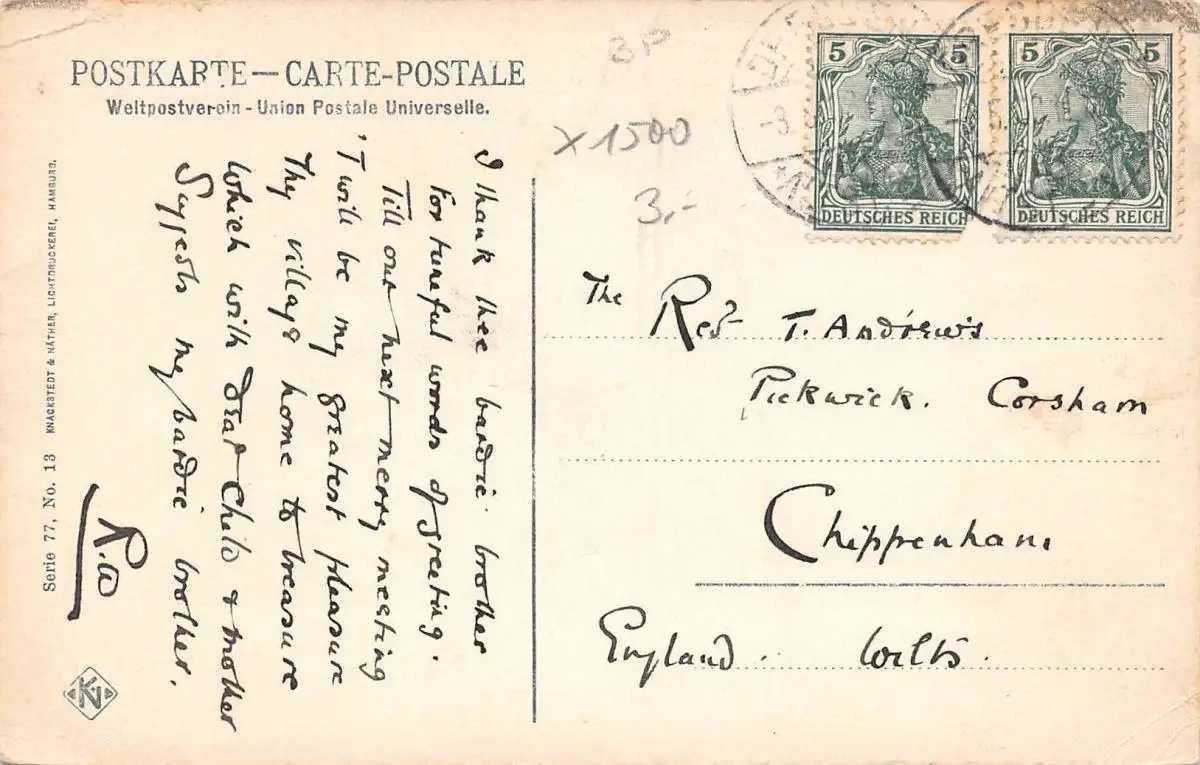 POSTKARTE — CARTE-POSTALE
Weltpostverein - Union Postale Universelle.
BP
x 1500
3,-
5 5
DEUTSCHES REICH
5 5
DEUTSCHES REICH
I thank thee bardic brother
For tuneful words of greeting.
Till our next merry meeting
'Twill be my greatest pleasure
Thy village home to treasure
Which with dear Child & mother
Suggests my bardic brother.
R.W
The Revd T. Andrews
Pickwick. Corsham
Chippenham
England. Wilts.
Serie 77, No. 13 KNACKSTEDT & NÄTHER, LICHTDRUCKEREI, HAMBURG.